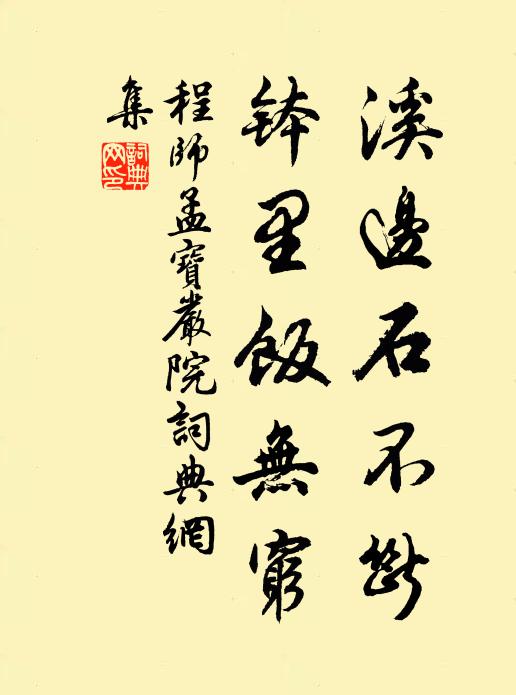 溪邊石不斷
鉢里飯無窮
程師孟寶嚴院詞典網
集
詞典
网印